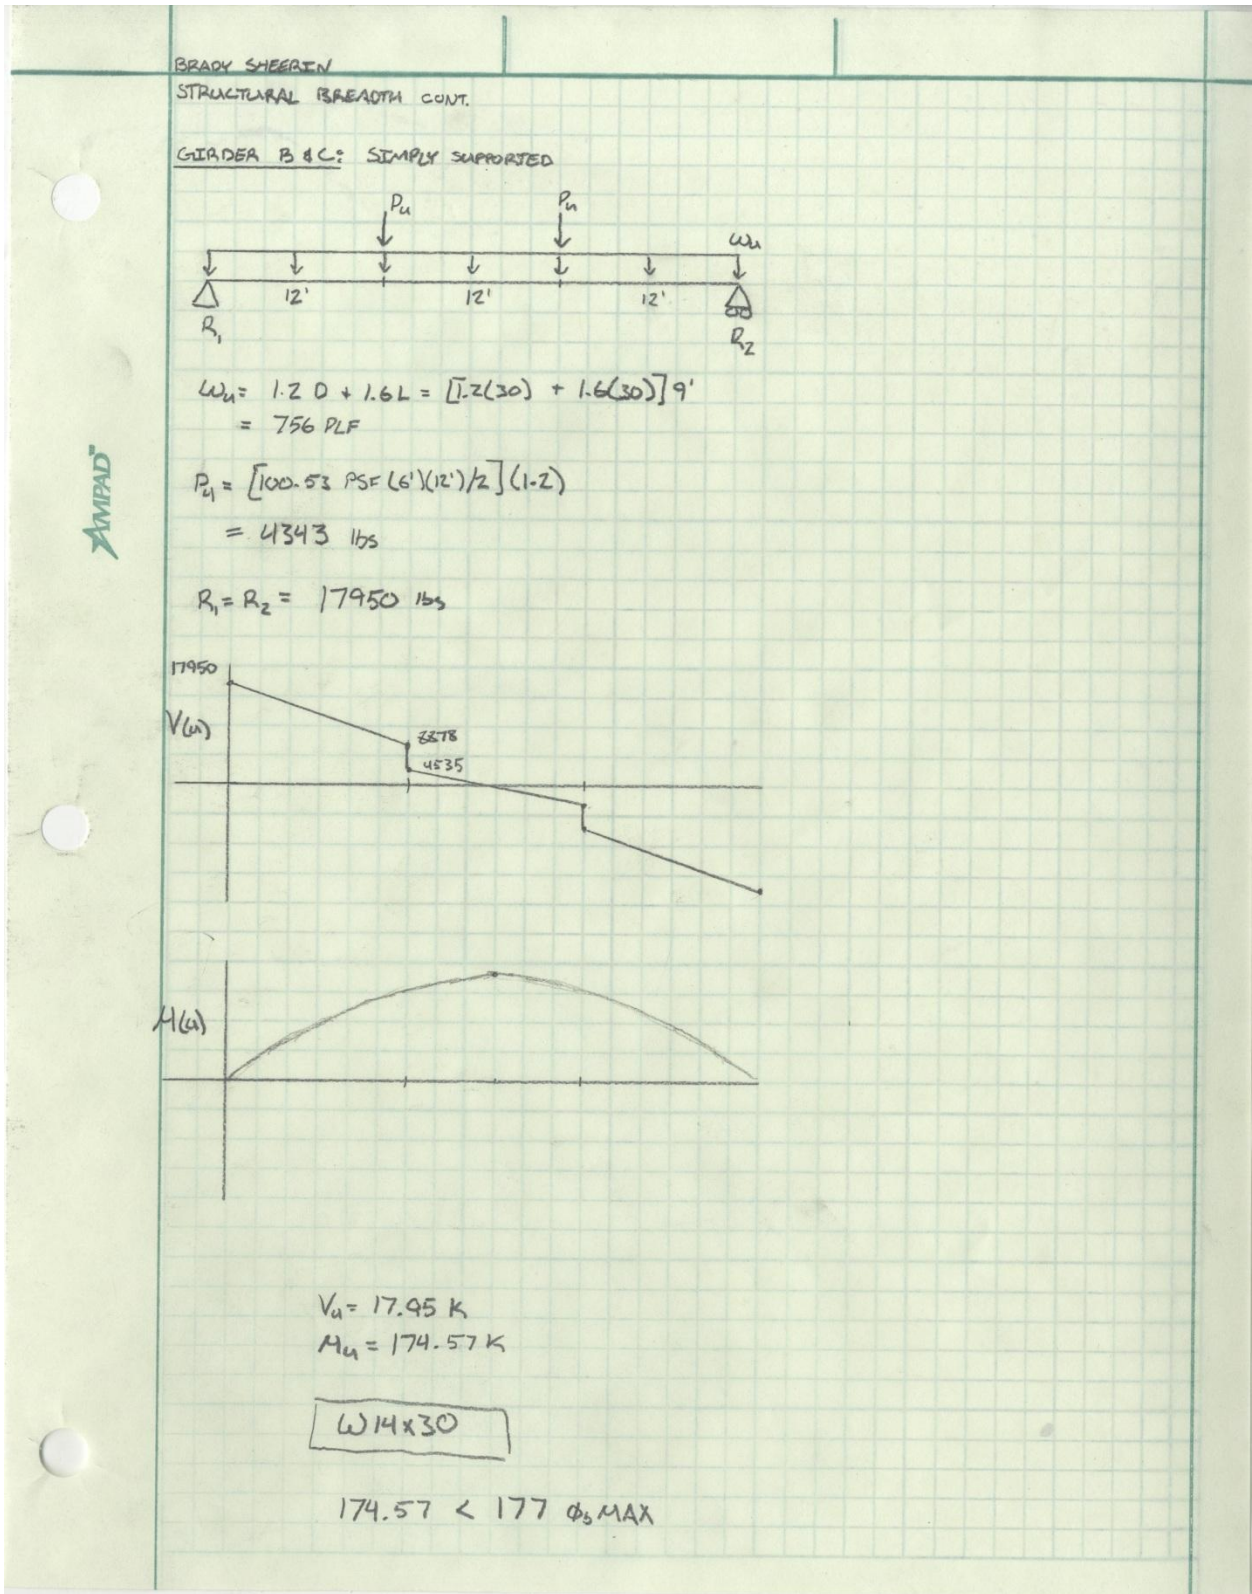 BRADY SHEERIN
STRUCTURAL BREADTH CONT.
GIRDER B & C: SIMPLY SUPPORTED
Pu Pu
ωu
12' 12' 12'
R1 R2
ωu = 1.2 D + 1.6 L = [1.2(30) + 1.6(30)] 9'
= 756 PLF
Pu = [100.53 PSF (6')(12')/2] (1.2)
= 4343 lbs
AMPAD™
R1 = R2 = 17950 lbs
17950
V(u)
8878
4535
M(u)
Vu = 17.95 K
Mu = 174.57 K
W14x30
174.57 < 177 ϕb MAX